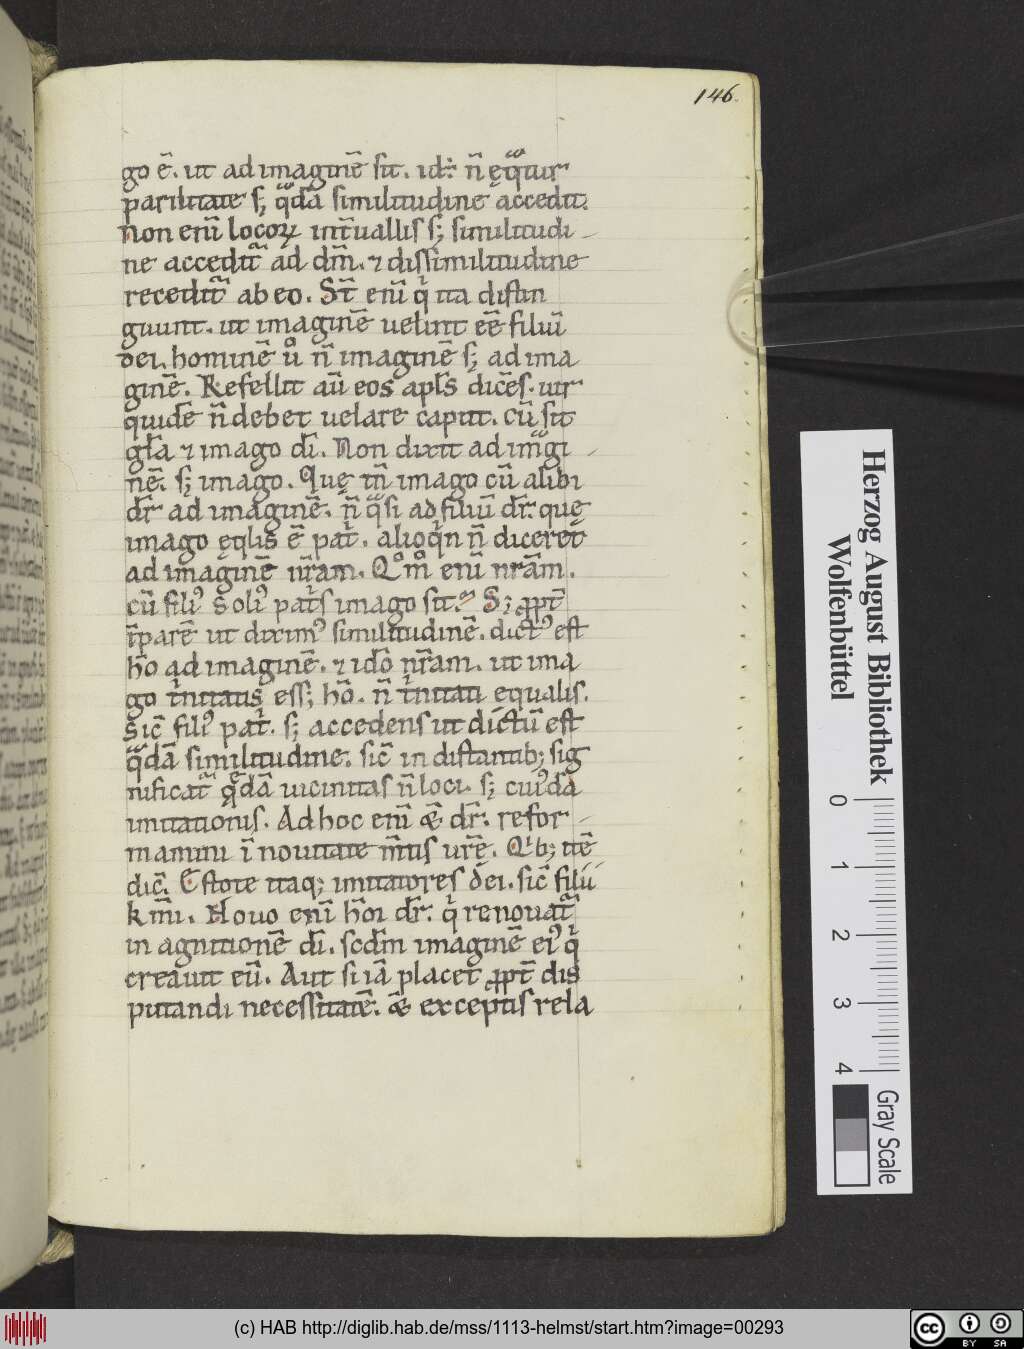 146.
go ē. ut ad imaginē sit. idr̄. n̄ ęqͣtur
parilitate s; qͣdā similitudine accedit.
non enī locoꝝ int̄uallis s; similitudi-
ne accedit᷑ ad dm̄. ⁊ dissimilitudine
recedit᷑ ab eo. St̄ enī qͥ ita distin
guunt. ut imaginē uelint eē filiū
dei. hominē uͦ n̄ imaginē s; ad ima
ginē. Refellit aū eos apl̄s dicēs. uir
quidē n̄ debet uelare caput. cū sit
gl̄a ⁊ imago dī. Non dixit ad imͣgi-
nē. s; imago. Quę tn̄ imago cū alibi
dr̄ ad imaginē. n̄ qͣsi ad filiū dr̄. quę
imago ęqlis ē patͥ. alioqͥn n̄ diceret
ad imaginē nr̄am. Qͦmͦ enī nr̄am.
cū filiꝰ soliꝰ pat̄s imago sit? S; ꝓpt̄
īparē ut diximꝰ similitudinē. dictꝰ est
hō ad imaginē. ⁊ idō nr̄am. ut ima
go tͥnitatis ess; hō. n̄ tͥnitati equalis.
Sic̄ filiꝰ patͥ. s; accedens ut dictū est
qͣdā similitudine. sic̄ in distantib; sig
nificat᷑ qͣdā uicinitas n̄ loci. s; cuiꝰdā
imitationis. Ad hoc enī & dr̄. refor-
mamini ī nouitate m̄tis urę̄. Qͥb; itē
dic̄. Estote itaq; imitatores dei. sic̄ filii
km̄i. Nouo enī hōi dr̄. qͥ renouat᷑
in agnitionē dī. scd̄m imaginē eiꝰ qͥ
creauit eū. Aut si iā placet ꝓpt̄ dis
putandi necessitatē. & exceptis rela
Herzog August Bibliothek
Wolfenbüttel
0 1 2 3 4
Gray Scale
(c) HAB http://diglib.hab.de/mss/1113-helmst/start.htm?image=00293
cc BY SA